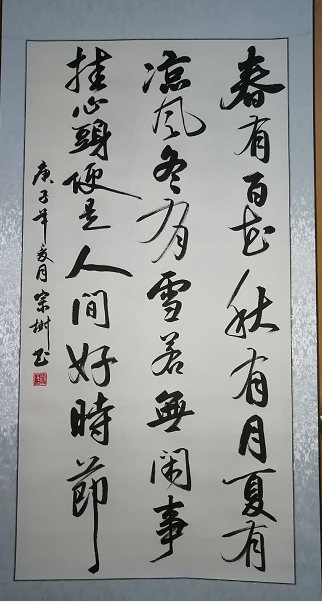 春有百花秋有月夏有
凉风冬有雪若無闲事
挂心頭便是人间好時節
庚子年夏月宗樹书